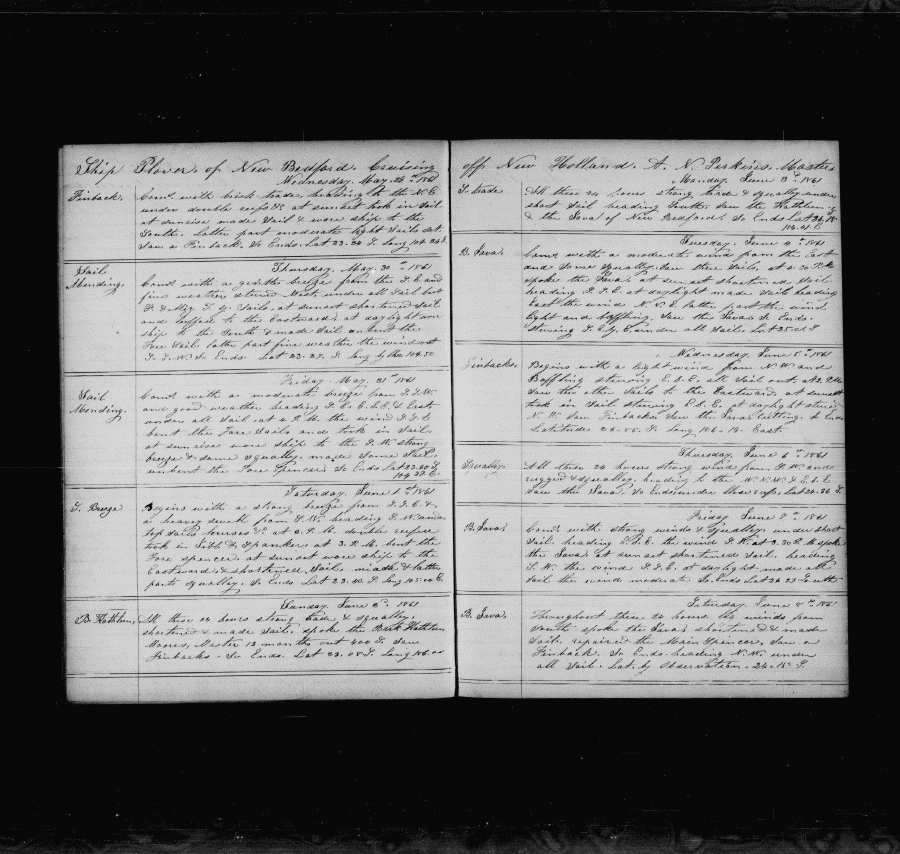 Ship Plover of New Bedford Cruising
Wednesday May 29th 1861
Finback. Comc with brisk trade, heading to the N.E.
under double reefs &c at sunset took in sail
at sunrise made Sail & wore ship to the
South. Latter part moderate light Sails set.
Saw a Finback. So Ends. Lat 23.32 S. Long 104.24
Thursday May 30th 1861
Sail Comc with a gentle breeze from the S.E and
Mending. fine weather steered West under all Sail but
at sunset shortened Sail
and luffed to the Eastward, at daylight wore
ship to the South & made Sail unbent the
Fore Sail. latter part fine weather the wind out
S.S.W. So Ends Lat 23.27 S. Long by Chro 104.50
Friday May 31st 1861
Sail Comc with a moderate breeze from S.S.W.
Mending. and good weather heading S.E. E.S.E & East
under all Sail at 2 P.M. the wind S.S.E
bent the Fore Sails and took in Sail
at sunrise wore ship to the S.W. strong
breeze & some squally. made some Sail
unbent the Fore Spencer So Ends Lat 23.20 S.
104.37 E.
Saturday June 1st 1861
S. Breeze Begins with a strong breeze from S.S.E &
a heavy swell from S.W. heading S.W. under
top sails courses &c at 2 P.M. double reefed
took in Jibb & Spanker at 3 P.M. bent the
Fore spencer at sunset wore ship to the
Eastward & shortened Sail. middle & latter
parts squally. So Ends Lat 23.20 S. Long 105.00 E.
Sunday June 2d 1861
B. Kathleen, All these 24 hours strong trade & squally
shortened & made Sail. spoke the Bark Kathleen
Moores, Master 13 months out 400 S. Saw
Finbacks. So Ends. Lat 23.05 S. Long 106.00
off New Holland. A. N. Perkins. Master
Monday June 3d 1861
S. Trade All these 24 hours strong trade & squally under
short Sail heading South. Saw the Kathleen
& the Java of New Bedford. So Ends Lat 24
104.41 E
Tuesday June 4th 1861
B. Java. Comc with a moderate wind from the East
and some squally. Saw three Sails, at 4.30 P.M.
spoke the Java, at sunset shortened Sail
heading S.S.E. at daylight made Sail heading
East the wind N.N.E latter part the wind
light and baffling. Saw the Java So Ends.
steering S.E by E under all Sail. Lat 25
Wednesday June 5th 1861
Finbacks. Begins with a light wind from N.W. and
Baffling steering E.S.E. all Sail out at 2 P.M.
saw two other Sails to the Eastward, at sunset
took in Sail steering E.S.E, at daylight steered
N.W. Saw Finbacks. Saw the Java Cutting. So Ends
Latitude 24.55 S. Long 106.19. East
Thursday June 6th 1861
Squally. All these 24 hours strong wind from S.W. and
rugged & squally. heading to the W.N.W & E.S.E
Saw the Java. So Ends under close reefs. Lat 24.38 S.
Friday June 7th 1861
B. Java. Comc with strong winds & squally. under short
Sail. heading E.S.E. the wind S.W. at 3.30 P.M. spoke
the Java. at sunset shortened Sail. heading
S.W. the wind S.S.E. at daylight made all
Sail the wind moderate So Ends Lat 24.23 South
Saturday June 8th 1861
B. Java. Throughout these 24 hours the winds from
South spoke the Java, shortened & made
Sail. repaired the Main Spencer, Saw a
Finback. So Ends. heading N.W. under
all Sail. Lat. by Observation. 24.15 S.